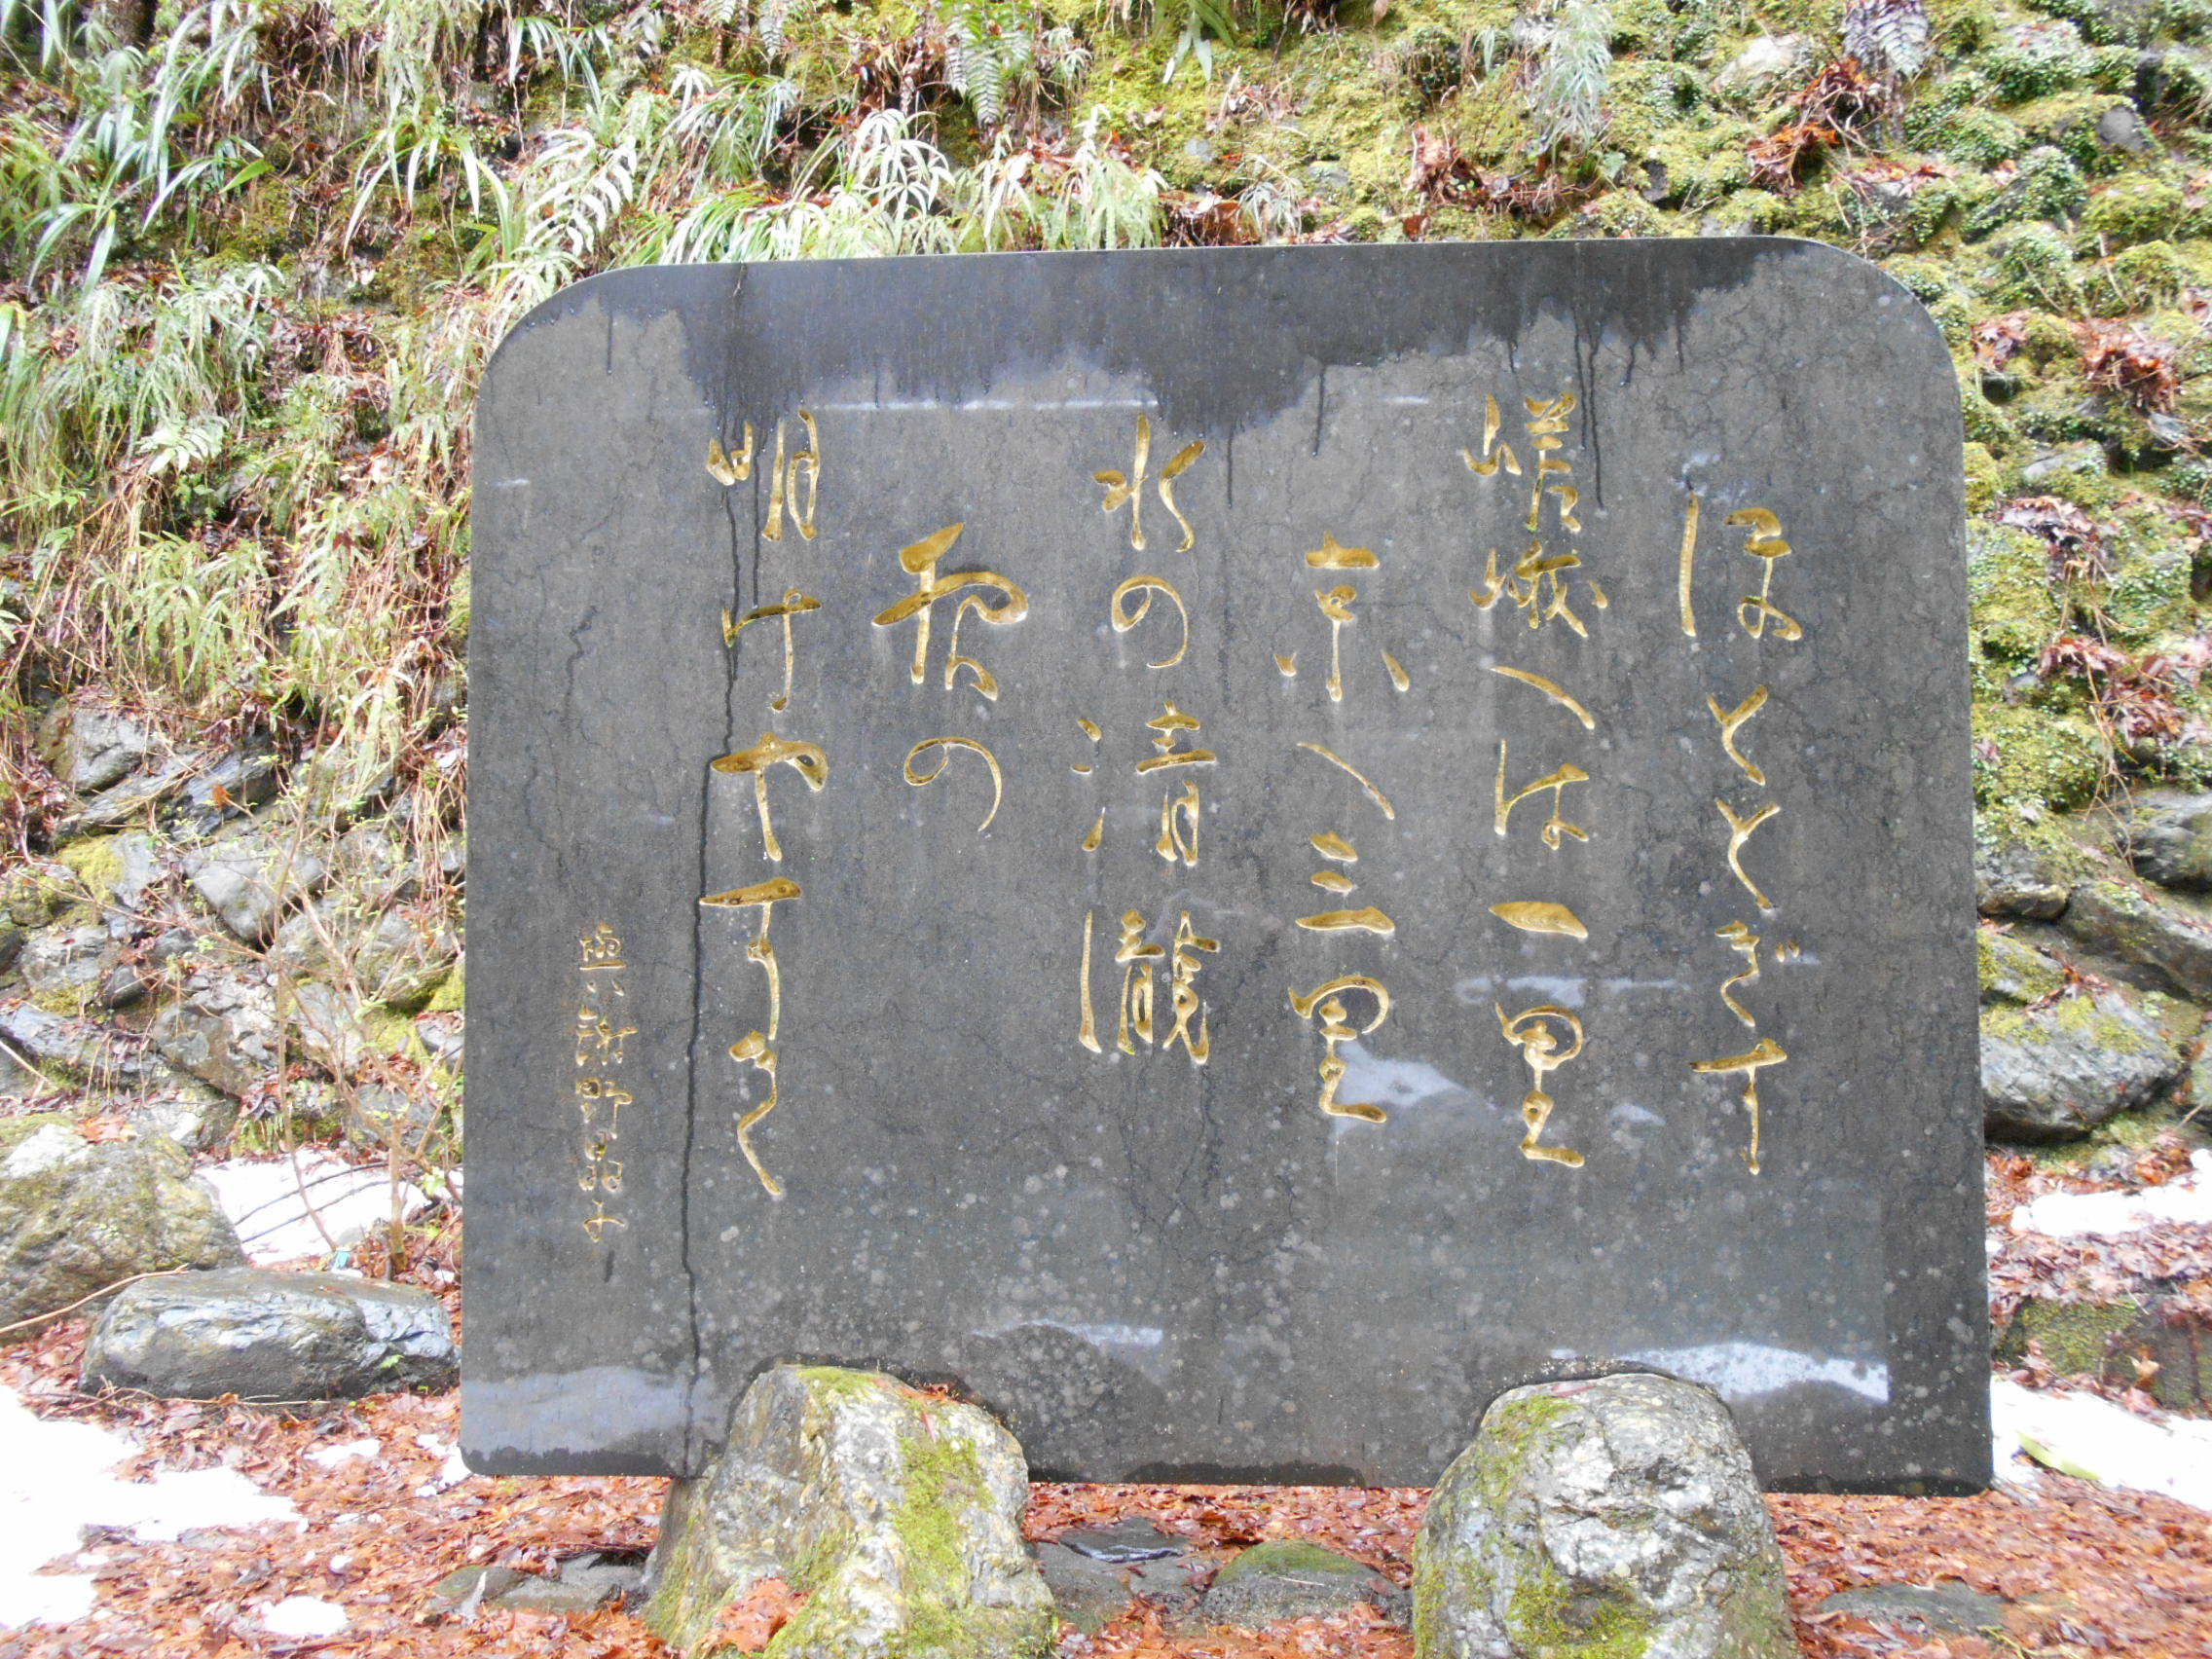 ほととぎす
嵯峨へは一里
京へ三里
水の清瀧
夜の
明けやすき
與謝野晶子